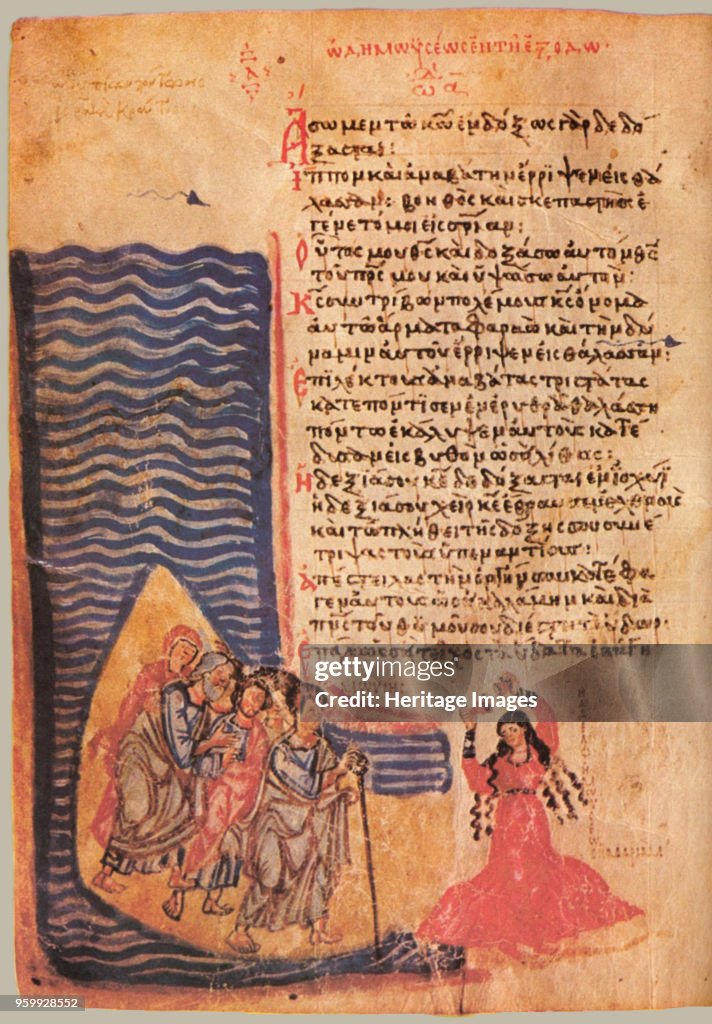 ὠδὴ μωϋσέως ἐν τῇ ἐξόδω
ὠδ α
Ἄσωμεν τῶ κω ἐνδόξως γὰρ δεδό
ξασται:
ἵππον καὶ ἀναβάτην ἔρριψεν εἰς θά
λασσαν: βοηθὸς καὶ σκεπαστὴς ἐ
γένετό μοι εἰς σριαν:
Οὗτός μου θς καὶ δοξάσω αὐτὸν θς
τοῦ πρς μου καὶ ὑψώσω αὐτόν:
Κς συντρίβων πολέμους κς ὄνομα
αὐτῶ ἅρματα φαραὼ καὶ τὴν δύ
ναμιν αὐτοῦ ἔρριψεν εἰς θάλασσαν:
Ἐπιλέκτους ἀναβάτας τριστάτας
κατεπόντισεν ἐν ἐρυθρᾶ θαλάσση
πόντω ἐκάλυψεν αὐτοὺς κατέ
δυσαν εἰς βυθὸν ὡσεὶ λίθος:
Ἡ δεξιά σου κε δεδόξασται ἐν ἰσχύϊ
ἡ δεξιά σου χεὶρ κε ἔθραυσεν ἐχθρούς
καὶ τῶ πλήθει τῆς δόξης σου συνέ
τριψας τοὺς ὑπεναντίους:
Ἀπέστειλας τὴν ὀργήν σου κατέφα
γεν αὐτοὺς ὡσεὶ καλάμην καὶ διὰ
πνς τοῦ θυμοῦ σου διέστη τὸ ὕδωρ:
Ἐπάγη ὡσεὶ τεῖχος τὰ ὕδατα ἐπάγη
gettyimages®
Credit: Heritage Images
959928552